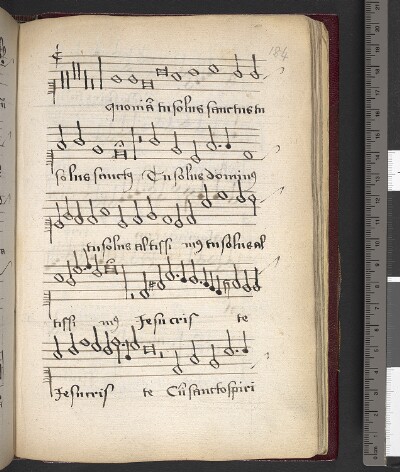 184
quoniā tu solus sanctus tu
solus sanctus Tu solus dominus
tu solus altissi mus tu solus al
tissi mus Jesu cris te
Jesu cris te Cū sancto spiri